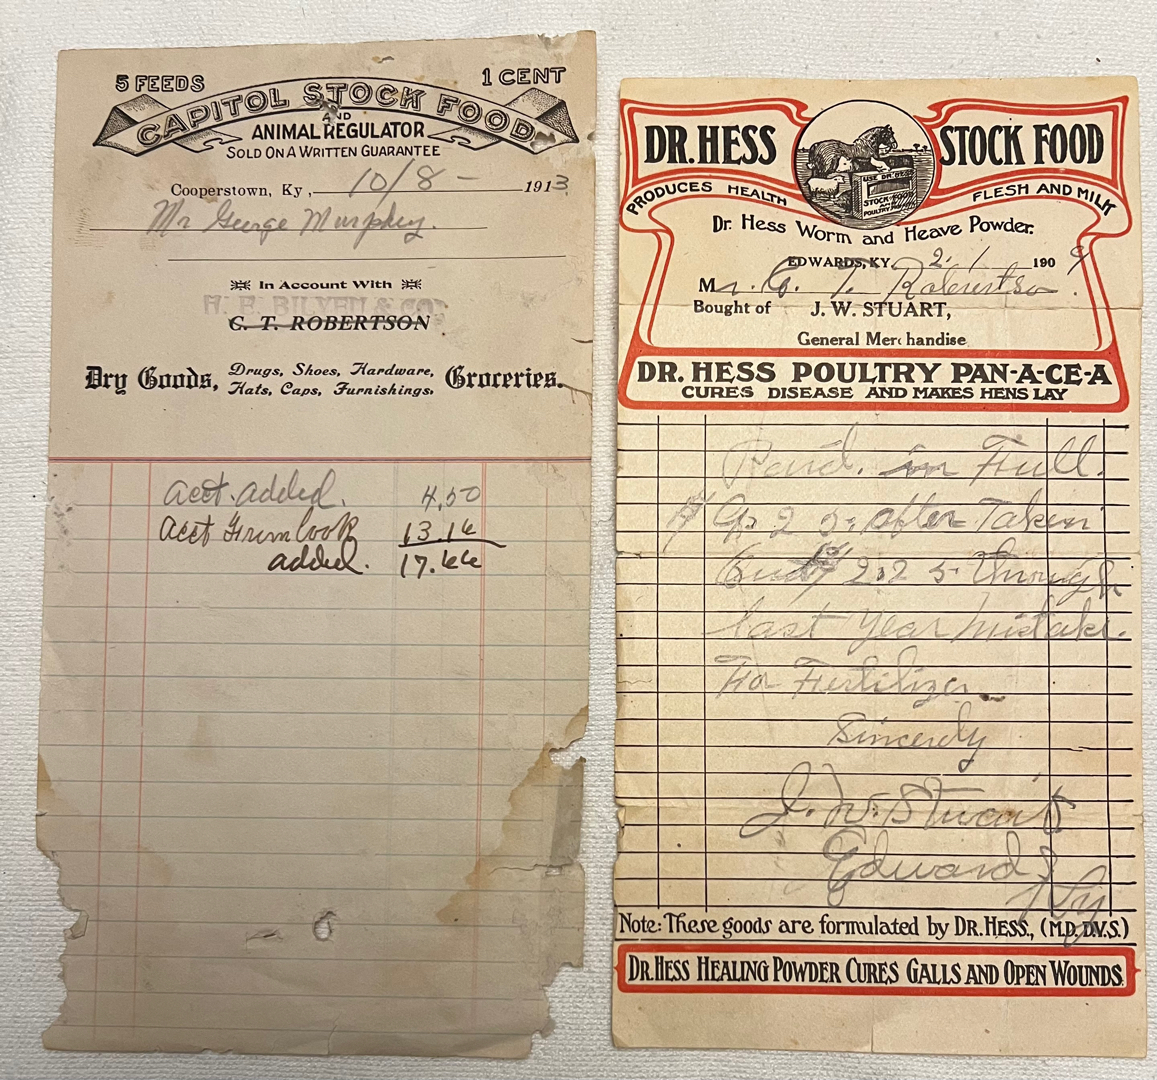 5 FEEDS 1 CENT
CAPITOL STOCK FOOD
AND
ANIMAL REGULATOR
SOLD ON A WRITTEN GUARANTEE
Cooperstown, Ky, 10/8 - 1913
Mr George Murphey.
In Account With
H. E. BILYEN & CO.
C. T. ROBERTSON
Dry Goods, Drugs, Shoes, Hardware, Groceries.
Hats, Caps, Furnishings.
acct. added. 4.50
Acct from book 13.16
added. 17.66
DR. HESS STOCK FOOD
USE DR. HESS
STOCK FOOD
POULTRY PAN-A-CE-A
PRODUCES HEALTH FLESH AND MILK
Dr. Hess Worm and Heave Powder.
EDWARDS, KY. 2-1 1909
Mr. C. T. Robertson
Bought of J. W. STUART,
General Merchandise
DR. HESS POULTRY PAN-A-CE-A
CURES DISEASE AND MAKES HENS LAY
Paid. in Full.
25 after Taken
2.25 through
last year mistake.
For Fertilizer
Sincerely
J. W. Stuart
Edwards
Ky
Note: These goods are formulated by DR. HESS., (M.D. D.V.S.)
DR. HESS HEALING POWDER CURES GALLS AND OPEN WOUNDS.